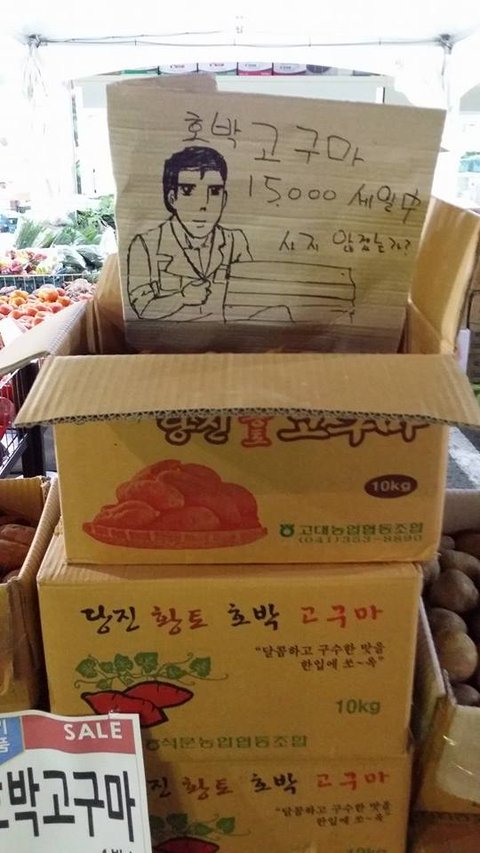 호박고구마
15,000 세일中
사지 않겠는가?
당진 황토 고구마
10kg
고대농업협동조합
(041)353-8890
당진 황토 호박 고구마
"달콤하고 구수한 맛을
한입에 쏘~옥"
10kg
석문농업협동조합
당진 황토 호박 고구마
"달콤하고 구수한 맛을
한입에 쏘~옥"
10kg
SALE
호박고구마